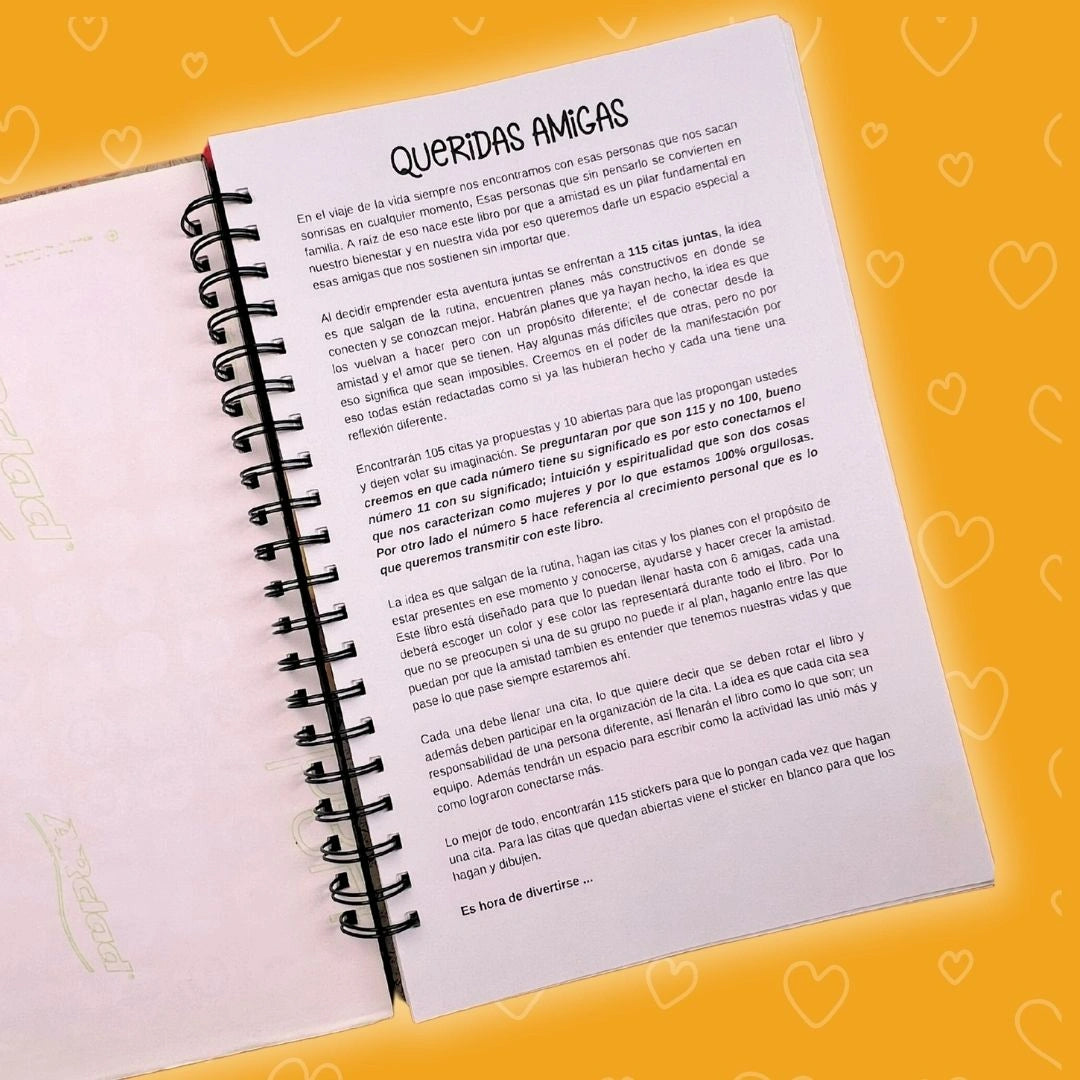 QUERIDAS AMIGAS
En el viaje de la vida siempre nos encontramos con esas personas que nos sacan
sonrisas en cualquier momento, Esas personas que sin pensarlo se convierten en
familia. A raíz de eso nace este libro por que a amistad es un pilar fundamental en
nuestro bienestar y en nuestra vida por eso queremos darle un espacio especial a
esas amigas que nos sostienen sin importar que.
Al decidir emprender esta aventura juntas se enfrentan a 115 citas juntas, la idea
es que salgan de la rutina, encuentren planes más constructivos en donde se
conecten y se conozcan mejor. Habrán planes que ya hayan hecho, la idea es que
los vuelvan a hacer pero con un propósito diferente; el de conectar desde la
amistad y el amor que se tienen. Hay algunas más difíciles que otras, pero no por
eso significa que sean imposibles. Creemos en el poder de la manifestación por
eso todas están redactadas como si ya las hubieran hecho y cada una tiene una
reflexión diferente.
Encontrarán 105 citas ya propuestas y 10 abiertas para que las propongan ustedes
y dejen volar su imaginación. Se preguntaran por que son 115 y no 100, bueno
creemos en que cada número tiene su significado es por esto conectamos el
número 11 con su significado; intuición y espiritualidad que son dos cosas
que nos caracterizan como mujeres y por lo que estamos 100% orgullosas.
Por otro lado el número 5 hace referencia al crecimiento personal que es lo
que queremos transmitir con este libro.
La idea es que salgan de la rutina, hagan las citas y los planes con el propósito de
estar presentes en ese momento y conocerse, ayudarse y hacer crecer la amistad.
Este libro está diseñado para que lo puedan llenar hasta con 6 amigas, cada una
deberá escoger un color y ese color las representará durante todo el libro. Por lo
que no se preocupen si una de su grupo no puede ir al plan, haganlo entre las que
puedan por que la amistad tambien es entender que tenemos nuestras vidas y que
pase lo que pase siempre estaremos ahí.
Cada una debe llenar una cita, lo que quiere decir que se deben rotar el libro y
además deben participar en la organización de la cita. La idea es que cada cita sea
responsabilidad de una persona diferente, así llenarán el libro como lo que son; un
equipo. Además tendrán un espacio para escribir como la actividad las unió más y
como lograron conectarse más.
Lo mejor de todo, encontrarán 115 stickers para que lo pongan cada vez que hagan
una cita. Para las citas que quedan abiertas viene el sticker en blanco para que los
hagan y dibujen.
Es hora de divertirse ...